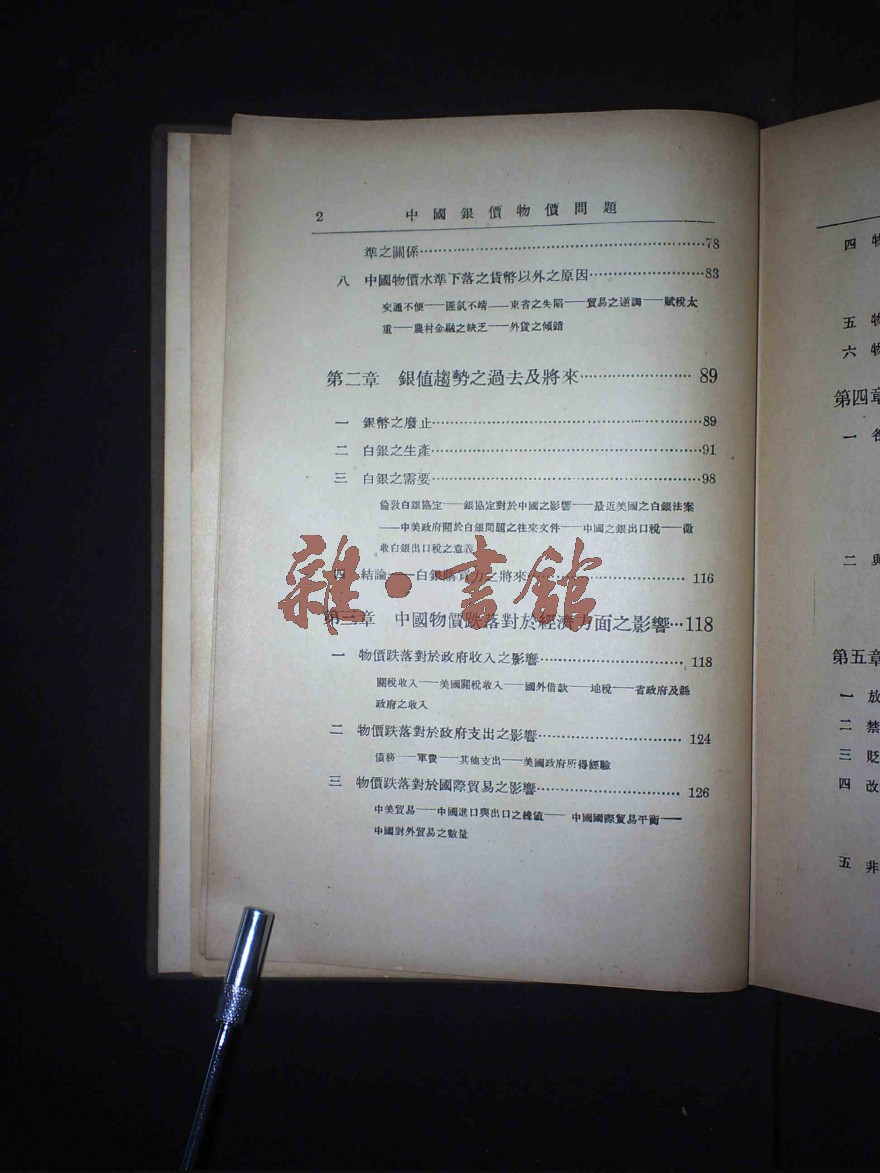 2 中國銀價物價問題
準之關係……78
八 中國物價水準下落之貨幣以外之原因……83
交通不便——匪氛不靖——東省之失陷——貿易之逆調——賦稅太
重——農村金融之缺乏——外貨之傾銷
第二章 銀值趨勢之過去及將來……89
一 銀幣之廢止……89
二 白銀之生產……91
三 白銀之需要……98
倫敦白銀協定——銀協定對於中國之影響——最近美國之白銀法案
——中美政府關於白銀問題之往來文件——中國之銀出口稅——徵
收白銀出口稅之意義
四 結論——白銀購買力之將來……116
第三章 中國物價跌落對於經濟方面之影響…118
一 物價跌落對於政府收入之影響……118
關稅收入——美國關稅收入——國外借款——地稅——省政府及縣
政府之收入
二 物價跌落對於政府支出之影響……124
債務——軍費——其他支出——美國政府所得經驗
三 物價跌落對於國際貿易之影響……126
中美貿易——中國進口與出口之總值——中國國際貿易平衡——
中國對外貿易之數量
雜·書館
四 物
五 物
六 物
第四章
一 各
二 與
第五章
一 放
二 禁
三 貶
四 改
五 非